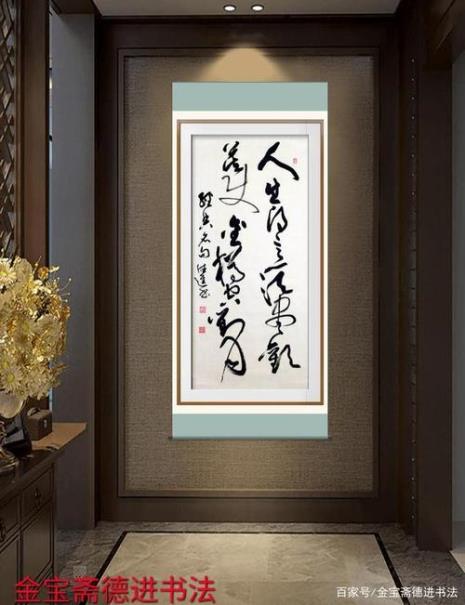 人生得意须尽欢
莫使金樽空对月
经典名句 德进书
金宝斋德进书法
百家号/金宝斋德进书法